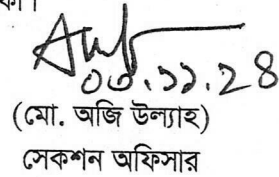 ০৩.১১.২৪
(মো. অজি উল্যাহ)
সেকশন অফিসার